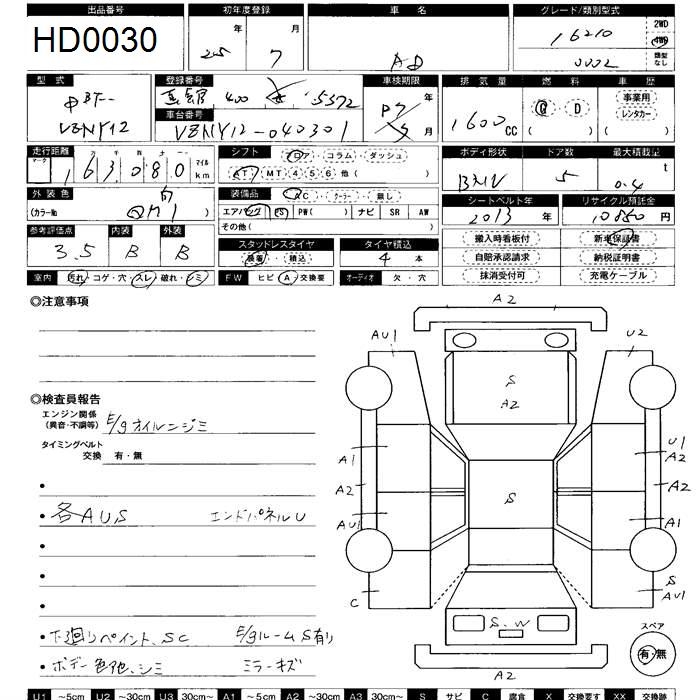 出品番号 初年度登録 車名 グレード/類別型式
HD0030 25年 7月 AD 16210 0002 2WD 4WD 類型なし
型式 登録番号 車検期限 排気量 燃料 車歴
VZNY12 400 5572 R7年 5月 1600CC G・D ( ) 事業用 レンタカー ( )
車台番号
VZNY12-040301
走行距離 シフト フロア・コラム・ダッシュ ボディ形状 ドア数 最大積載量
マーク 163,080 マイル km AT MT 4 5 6 他( ) BAN 5 0.4 t
外装色 装備品 AC・クーラー・無し シートベルト リサイクル預託金
(カラーNo QM1 ) エアバッグ PS PW( ) ナビ SR AW 2013年 10850円
その他( )
参考評価点 内装 外装 スタッドレスタイヤ タイヤ積込 搬入時看板付 新車保証書
3.5 B B 装着・積込 4本 自賠承認請求 納税証明書
室内 汚れ・コゲ・穴・スレ・破れ・シミ FW ヒビ A 交換要 オーディオ 欠・穴 抹消受付可 充電ケーブル
◎注意事項
◎検査員報告
エンジン関係
(異音・不調等) E/gオイルニジミ
タイミングベルト
交換 有・無
・各AU,S エンドパネルU
・下廻りペイント、SC E/gルームS有り
・ボデー色地、シミ ミラーキズ
A2
AU1 U2
S
A2
A1 U1 A2
A2 S A2
AU1 A1
C S AU1
S.W
A2
スペア
有・無
U1 ~5cm U2 ~30cm U3 30cm~ A1 ~5cm A2 ~30cm A3 30cm~ S サビ C 腐食 X 交換要す XX 交換跡